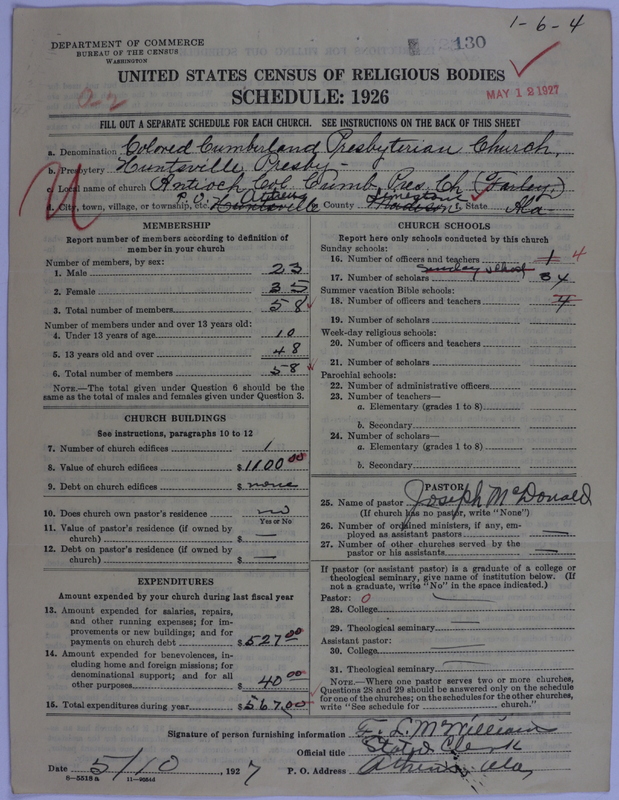 1-6-4
DEPARTMENT OF COMMERCE
BUREAU OF THE CENSUS
WASHINGTON
130
UNITED STATES CENSUS OF RELIGIOUS BODIES
SCHEDULE: 1926
MAY 12 1927
FILL OUT A SEPARATE SCHEDULE FOR EACH CHURCH. SEE INSTRUCTIONS ON THE BACK OF THIS SHEET
a. Denomination Colored Cumberland Presbyterian Church,
b. Presbytery Huntsville Presby-
c. Local name of church Antioch Col. Cumb. Pres. Ch (Farley,)
P.O. Athens Limestone
d. City, town, village, or township, etc. Huntsville County Madison, State Ala-
MEMBERSHIP
Report number of members according to definition of member in your church
Number of members, by sex:
1. Male 23
2. Female 35
3. Total number of members 58
Number of members under and over 13 years old:
4. Under 13 years of age 10
5. 13 years old and over 48
6. Total number of members 58
NOTE.—The total given under Question 6 should be the same as the total of males and females given under Question 3.
CHURCH BUILDINGS
See instructions, paragraphs 10 to 12
7. Number of church edifices 1
8. Value of church edifices $1100 00
9. Debt on church edifices $ none
10. Does church own pastor's residence no
Yes or No
11. Value of pastor's residence (if owned by church) $ —
12. Debt on pastor's residence (if owned by church) $ —
EXPENDITURES
Amount expended by your church during last fiscal year
13. Amount expended for salaries, repairs, and other running expenses; for improvements or new buildings; and for payments on church debt $527 00
14. Amount expended for benevolences, including home and foreign missions; for denominational support; and for all other purposes $ 40 00
15. Total expenditures during year $567.00
CHURCH SCHOOLS
Report here only schools conducted by this church
Sunday schools:
16. Number of officers and teachers 1 4
Sunday school
17. Number of scholars 34
Summer vacation Bible schools:
18. Number of officers and teachers 4
19. Number of scholars
Week-day religious schools:
20. Number of officers and teachers
21. Number of scholars
Parochial schools:
22. Number of administrative officers
23. Number of teachers—
a. Elementary (grades 1 to 8)
b. Secondary
24. Number of scholars—
a. Elementary (grades 1 to 8)
b. Secondary
PASTOR
25. Name of pastor Joseph McDonald
(If church has no pastor, write "None")
26. Number of ordained ministers, if any, employed as assistant pastors —
27. Number of other churches served by the pastor or his assistants —
If pastor (or assistant pastor) is a graduate of a college or theological seminary, give name of institution below. (If not a graduate, write "No" in the space indicated.)
Pastor: 0
28. College —
29. Theological seminary —
Assistant pastor:
30. College —
31. Theological seminary —
NOTE.—Where one pastor serves two or more churches, Questions 28 and 29 should be answered only on the schedule for one of the churches; on the schedules for the other churches, write "See schedule for ---- church."
Signature of person furnishing information F. L. McWilliams
Official title Stated Clerk
Date 5/10, 1927 P. O. Address Athens, Ala,
8-5518 a